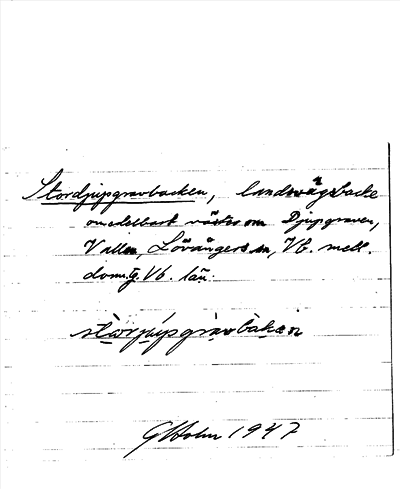 Stordjupgravbacken, landsvägsbacke
omedelbart väster om Djupgraven,
Vallen, Lövångers sn, Vb. mell.
doms. Vb. län.
G Holm 1947